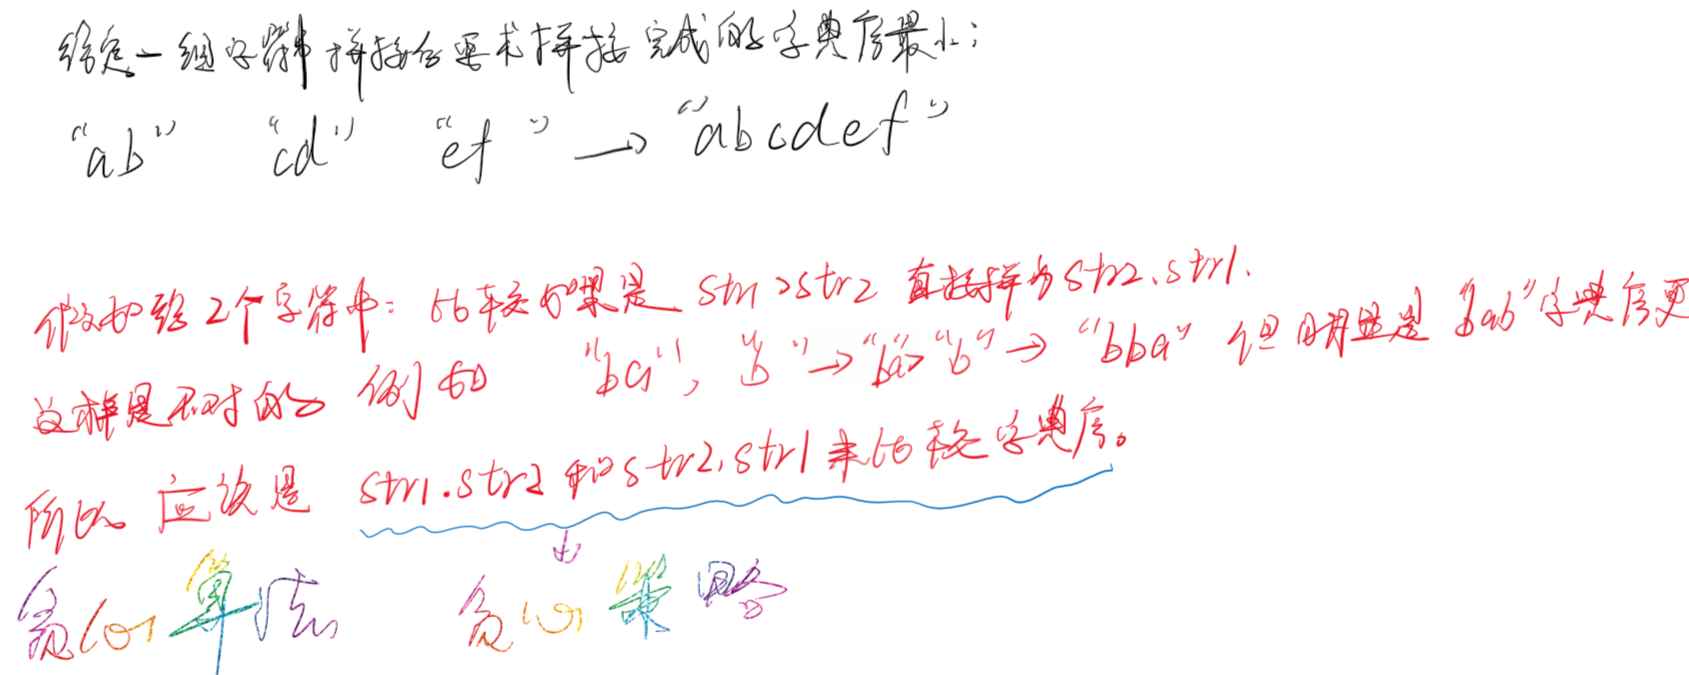 给定一组字符串拼接后要求拼接完成的字典序最小；
“ab” “cd” “ef” → “abcdef”
假如给2个字符串：比较如果是 str1 > str2 直接拼为 str2.str1.
这样是不对的 例如 “ba”, “b” → “ba” > “b” → “bba” 但明显是 “bab” 字典序更
所以 应该是 str1.str2 和 str2.str1 来比较字典序。
贪心算法 贪心策略